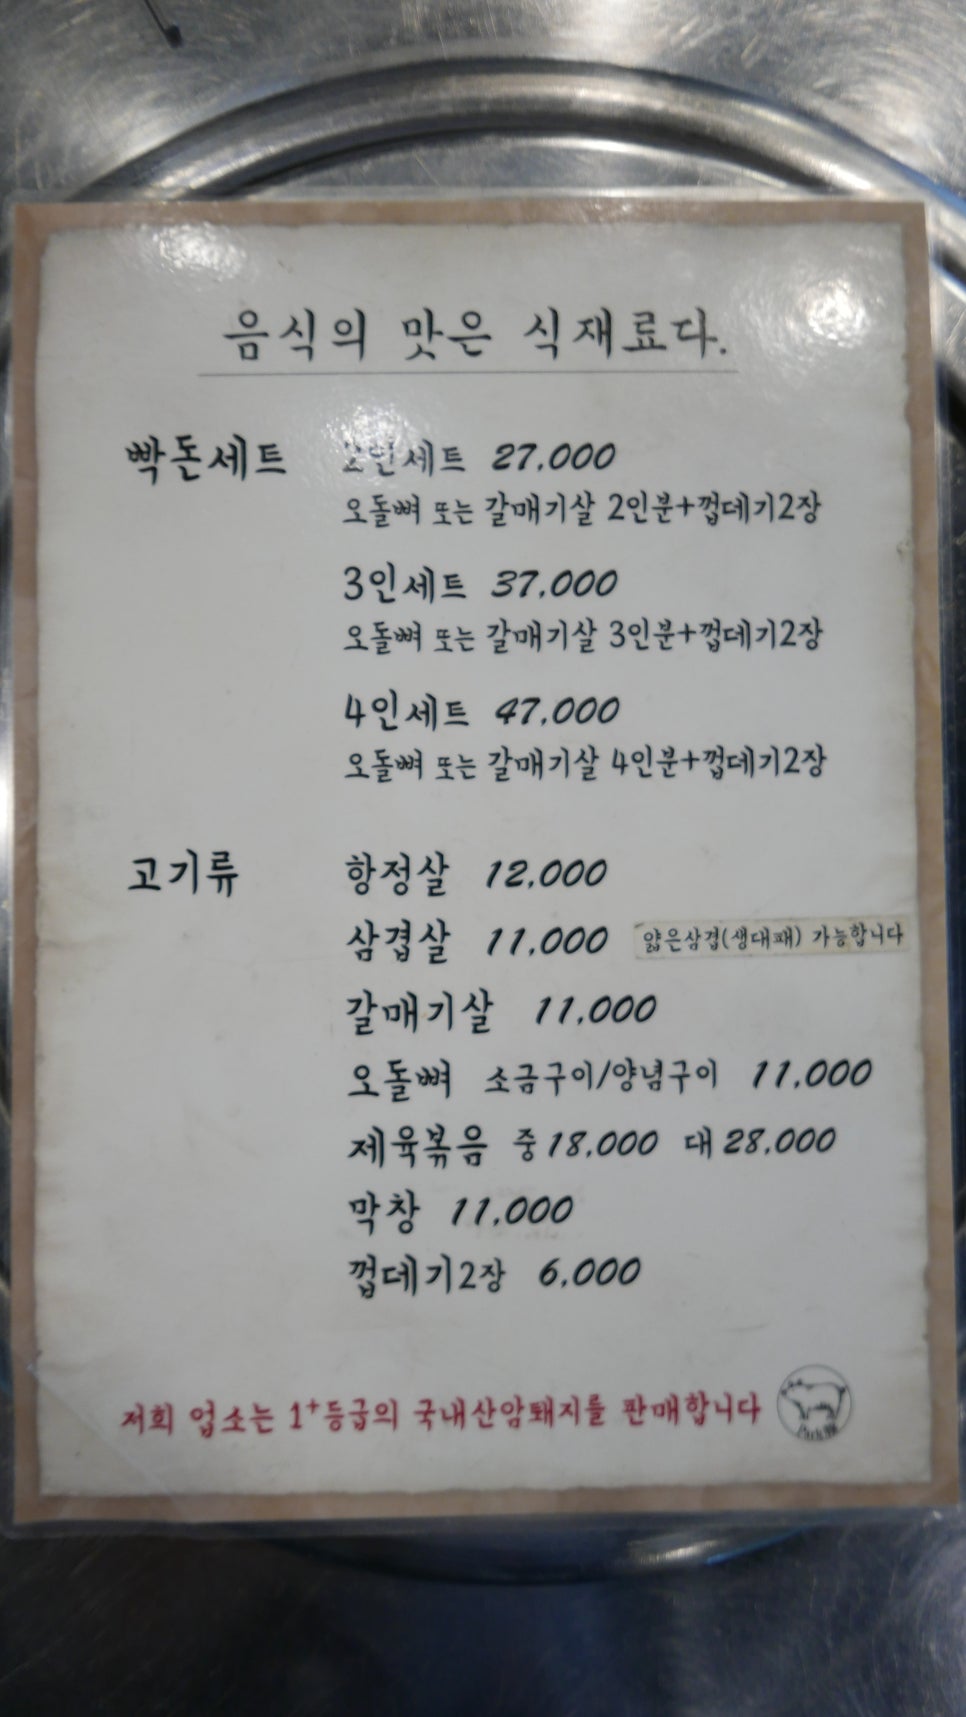 음식의 맛은 식재료다.
빡돈세트 2인세트 27,000
오돌뼈 또는 갈매기살 2인분+껍데기2장
3인세트 37,000
오돌뼈 또는 갈매기살 3인분+껍데기2장
4인세트 47,000
오돌뼈 또는 갈매기살 4인분+껍데기2장
고기류 항정살 12,000
삼겹살 11,000 얇은삼겹(생대패) 가능합니다
갈매기살 11,000
오돌뼈 소금구이/양념구이 11,000
제육볶음 중 18,000 대 28,000
막창 11,000
껍데기2장 6,000
저희 업소는 1+등급의 국내산암퇘지를 판매합니다